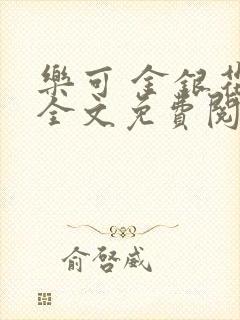 樂可 金銀花
全文免費閱
俞啓威